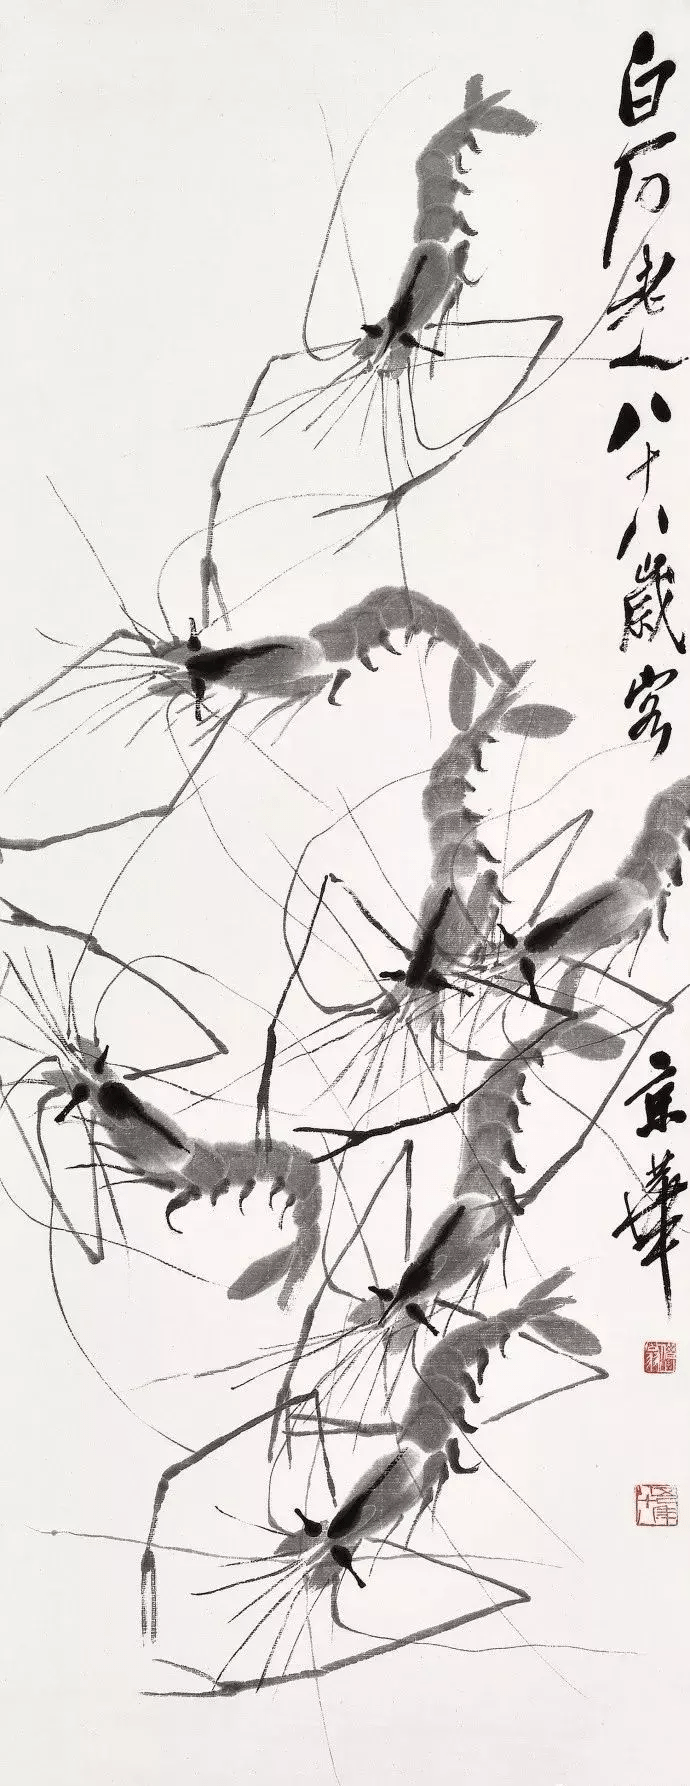 白石老人八十八歲客
京華